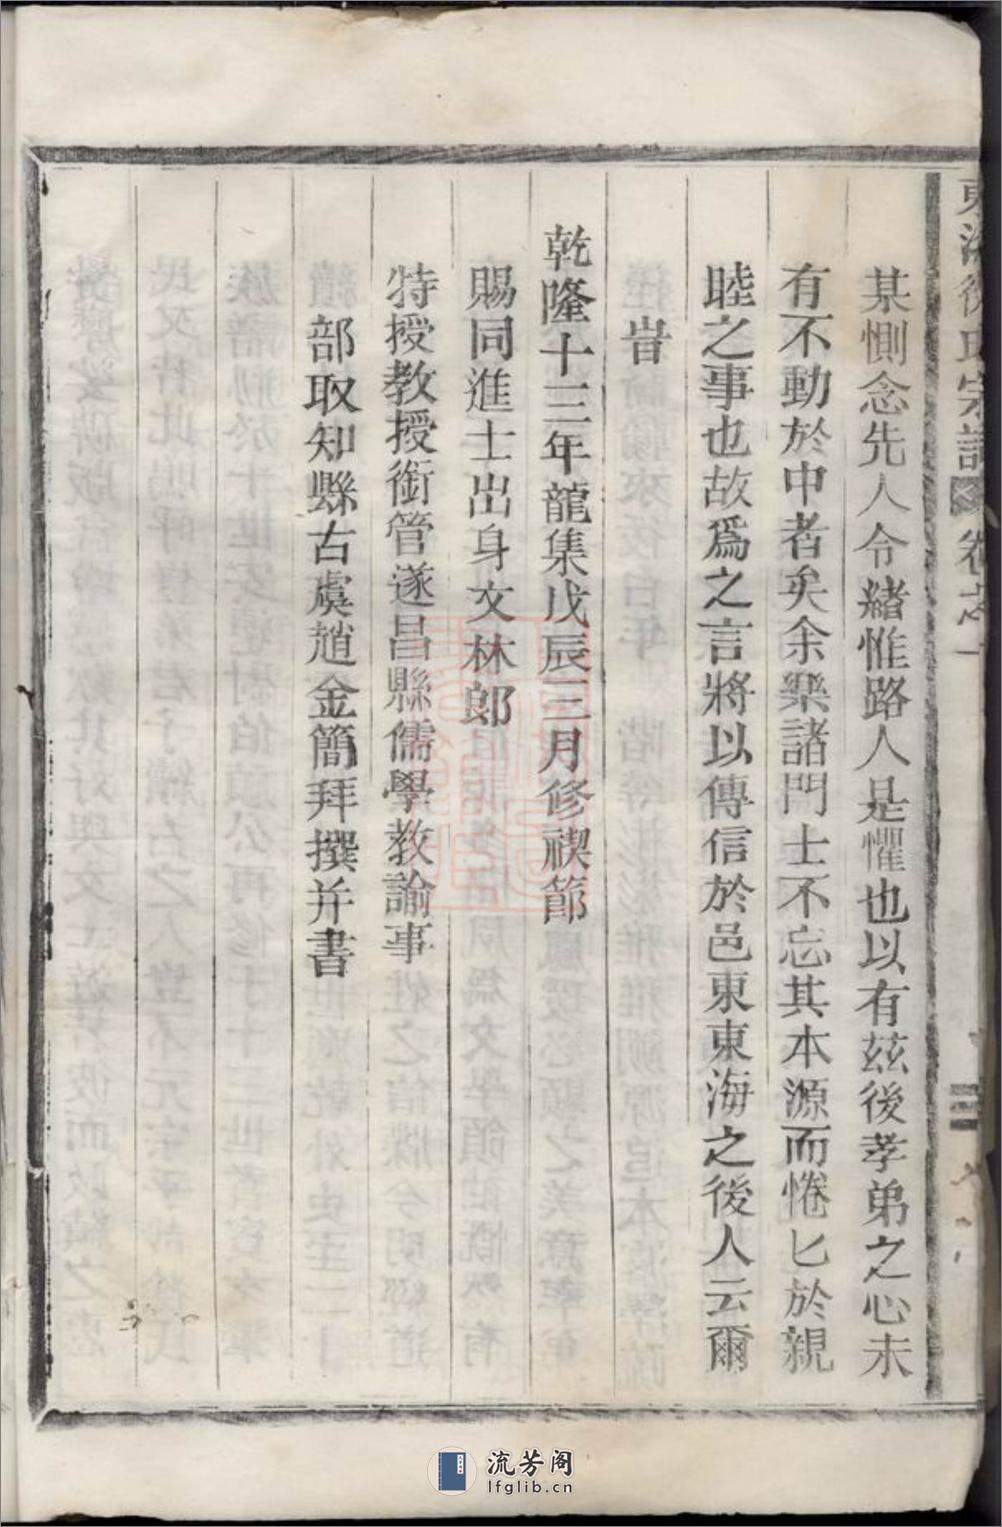 東海徐氏宗譜 卷之一
某惻念先人令緒惟路人是懼也以有茲後孝弟之心未
有不動於中者矣余樂諸門士不忘其本源而惓匕於親
睦之事也故爲之言將以傳信於邑東東海之後人云爾
旹
乾隆十三年龍集戊辰三月修禊節
賜同進士出身文林郎
特授教授銜管遂昌縣儒學教諭事
部取知縣古虞趙金簡拜撰并書
流芳阁
lfglib.cn